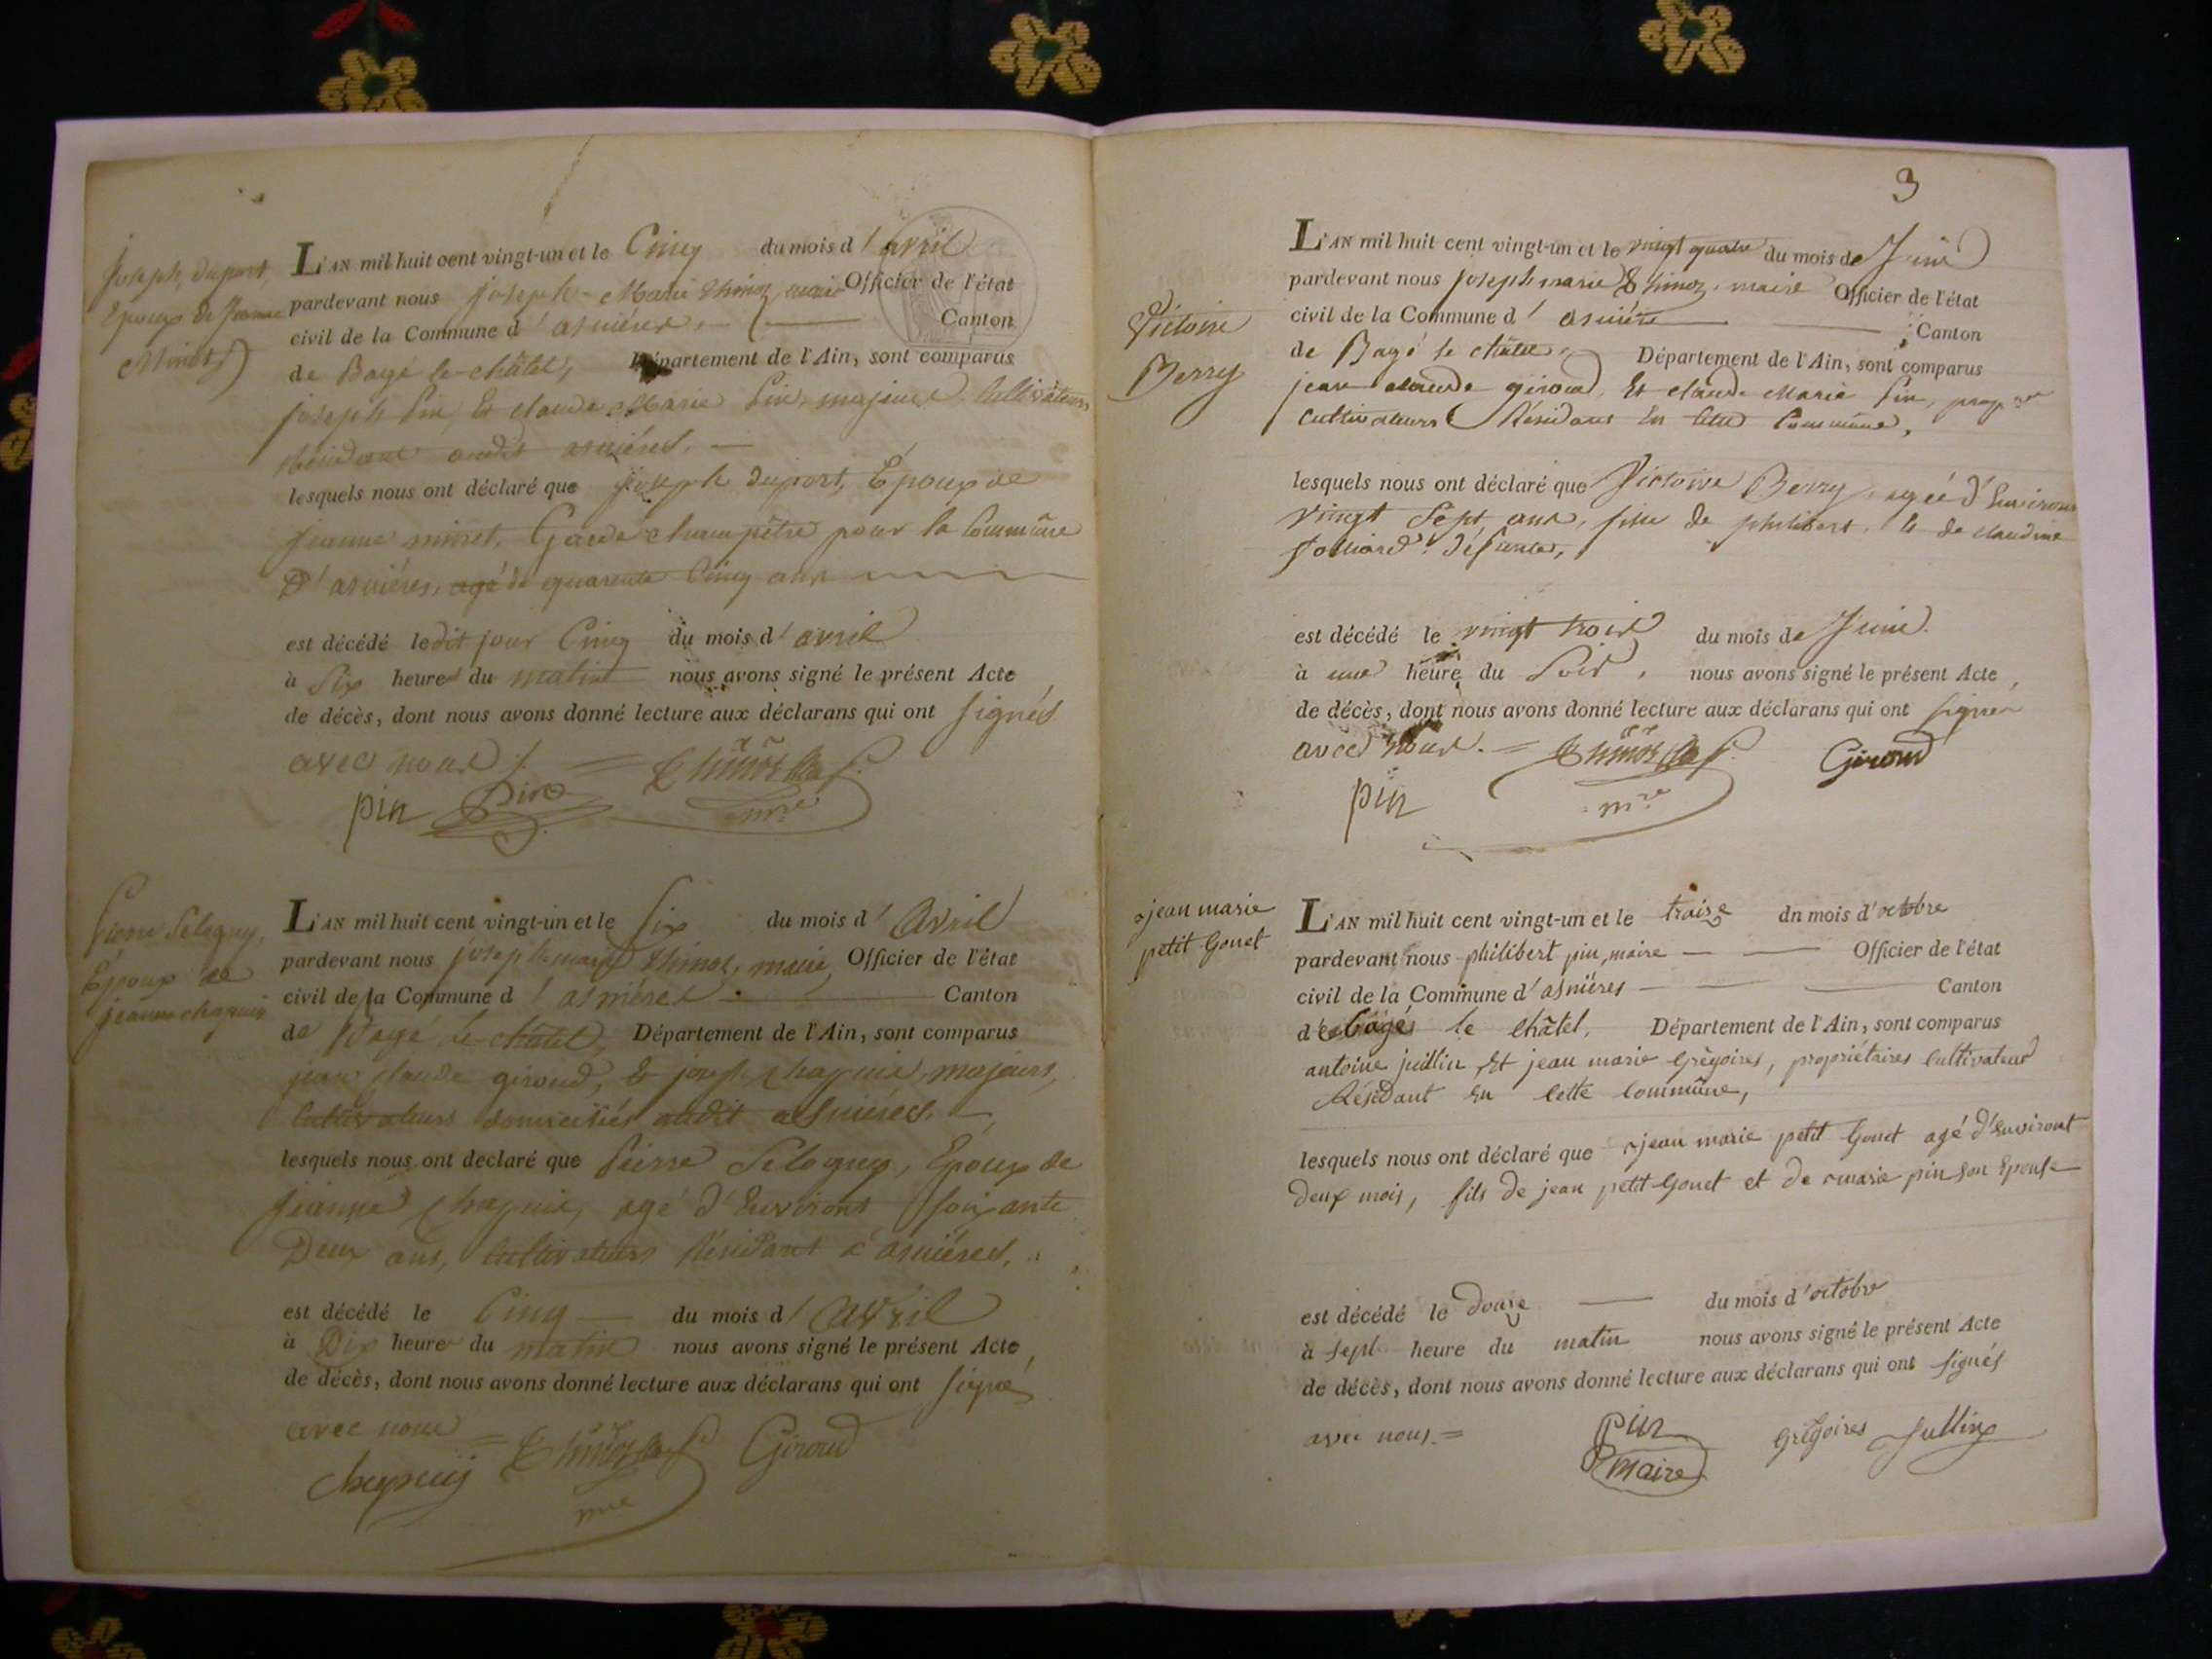 Joseph duport,
Epoux de Jeanne
Minet
L'AN mil huit cent vingt-un et le Cinq du mois d'avril
pardevant nous joseph-Marie maire Officier de l'état
civil de la Commune d'asniéres. Canton
de Bagé le châtel, Département de l'Ain, sont comparus
joseph Pin, Et claude Marie Pin, majeurs, Cultivateurs
Résidant audit asniéres.
lesquels nous ont déclaré que joseph duport, Époux de
jeanne minet, Garde champêtre pour la Commune
D'asniéres, agé de quarente Cinq ans
est décédé ledit jour Cinq du mois d'avril
à Six heures du matin nous avons signé le présent Acte
de décès, dont nous avons donné lecture aux déclarans qui ont signés
avec nous
pin Pin mre
Pierre Selogny,
Epoux de
jeanne chapuis
L'AN mil huit cent vingt-un et le Six du mois d'Avril
pardevant nous joseph marie maire, Officier de l'état
civil de la Commune d'asniéres Canton
de Bagé le châtel, Département de l'Ain, sont comparus
jean claude giroud, & joseph chapuis, majeurs,
Cultivateurs domiciliés audit asniéres.
lesquels nous ont declaré que Pierre Selogny, Epoux de
jeanne chapuis, agé d'Environs soixante
Deux ans, Cultivateurs Résidant à asniéres,
est décédé le Cinq du mois d'Avril
à Dix heures du matin nous avons signé le présent Acte
de décès, dont nous avons donné lecture aux déclarans qui ont signé
avec nous
chapuis Giroud
mre
3
Victoire
Berry
L'AN mil huit cent vingt-un et le vingt quatre du mois de Juin
pardevant nous joseph marie maire Officier de l'état
civil de la Commune d'asniére Canton
de Bagé le châtel, Département de l'Ain, sont comparus
jean claude giroud, Et claude Marie Pin, propres
Cultivateurs Résidant En Cette Commune,
lesquels nous ont déclaré que Victoire Berry, agée d'Environ
vingt Sept ans, fille de philibert, & de claudine
défunte,
est décédé le vingt trois du mois de Juin.
à une heure du Soir, nous avons signé le présent Acte
de décès, dont nous avons donné lecture aux déclarans qui ont signer
avec nous. Giroud
pin mre
jean marie
petit Gonet
L'AN mil huit cent vingt-un et le traize dn mois d'octobre
pardevant nous philibert pin, maire Officier de l'état
civil de la Commune d'asniéres Canton
de bagé le Châtel, Département de l'Ain, sont comparus
antoine jullin Et jean marie Grégoires, propriétaires Cultivateurs
Résidant En Cette Commune,
lesquels nous ont déclaré que jean marie petit Gonet agé d'Environt
deux mois, fils de jean petit Gonet et de marie pin son Epouse
est décédé le douze du mois d'octobre
à sept heure du matin nous avons signé le présent Acte
de décès, dont nous avons donné lecture aux déclarans qui ont signés
avec nous
pin Grégoires Jullin
maire